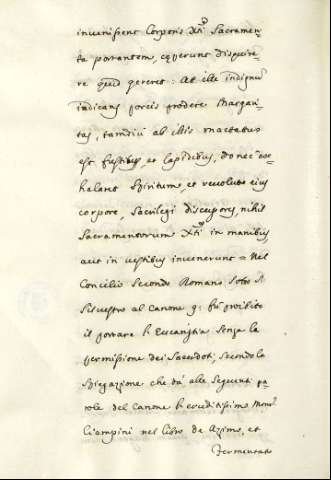 invenissent Corporis Xti Sacramen-
ta portantem, coeperunt disquire-
re quid gereret: At ille indignum
iudicans porcis prodere Margari-
tas, tamdiu ab illis mactatus
est fustibus, et lapidibus, donec ex-
halaret spiritum, et revoluto eius
corpore, sacrilegi discussores nihil
Sacramentorum Xti in manibus,
aut in vestibus invenerunt = Nel
Concilio Secondo Romano sotto S.
Silvestro al Canone 9: fù proibito
il portare l'Eucaristia senza la
permissione dei Sacerdoti, secondo la
spiegazione che dà alle seguenti pa
role del Canone l'eruditissimo Mons.r
Ciampini nel libro de Azimo, et
Fermentato